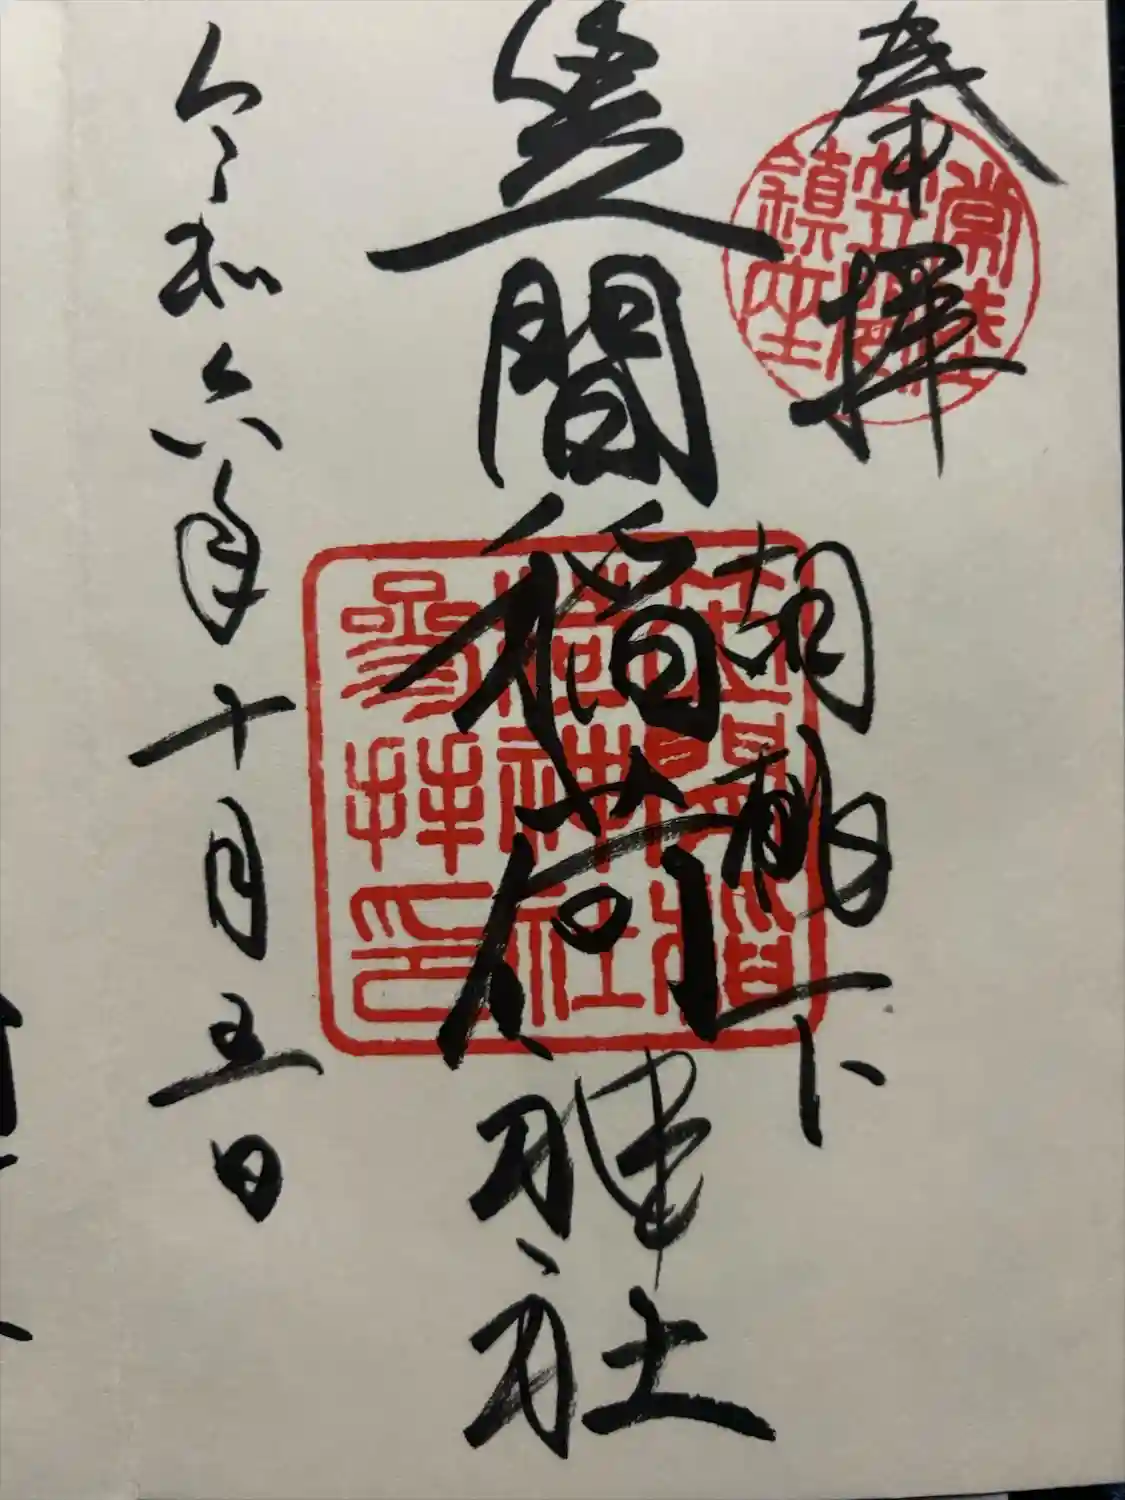 奉拝
常陸
笠間
鎮座
胡桃下
笠間稲荷神社
笠間稲
荷神社
參拝印
令和六年十月五日